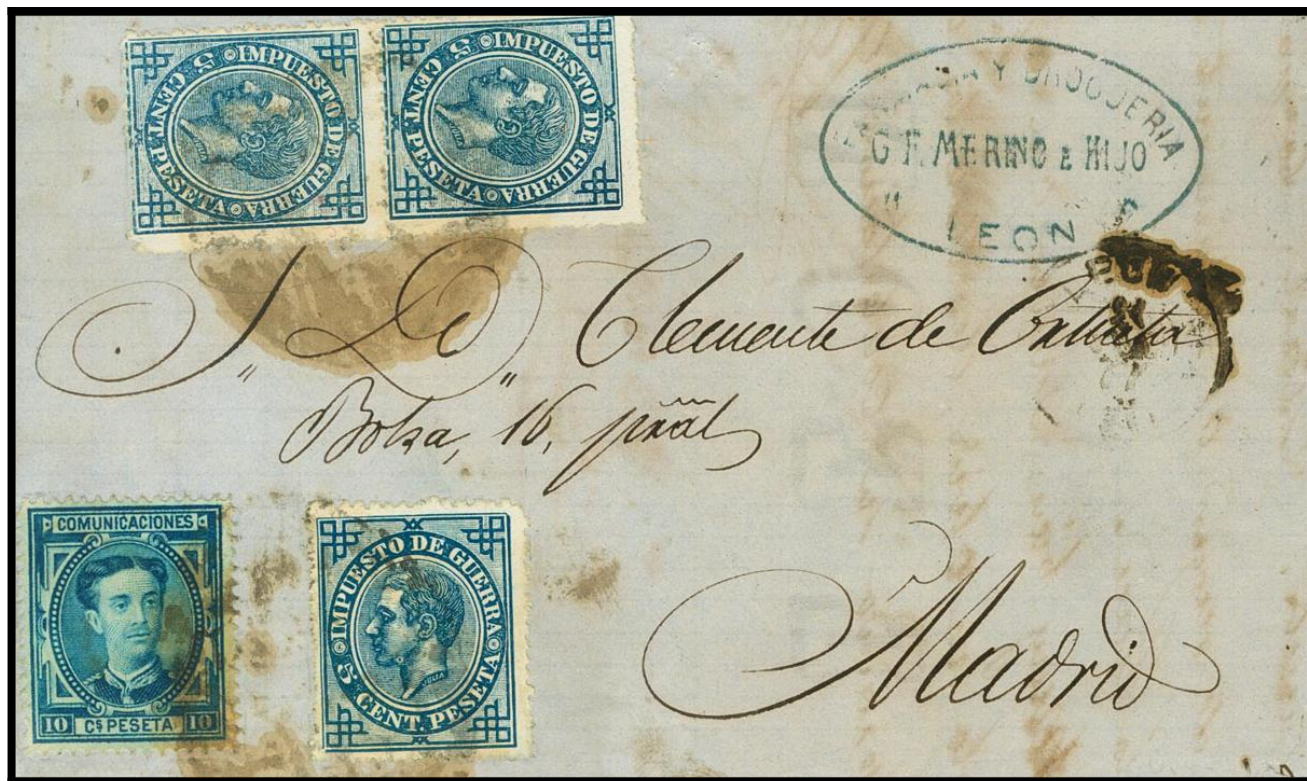 5 CENT PESETA IMPUESTO DE GUERRA
5 CENT PESETA IMPUESTO DE GUERRA
Y DROGUERIA
G F. MERINO E HIJO
LEON
S. D. Clemente de
Bolsa, 16, pñal
COMUNICACIONES
10 Cs PESETA 10
IMPUESTO DE GUERRA
5 CENT. PESETA
JULIA
Madrid